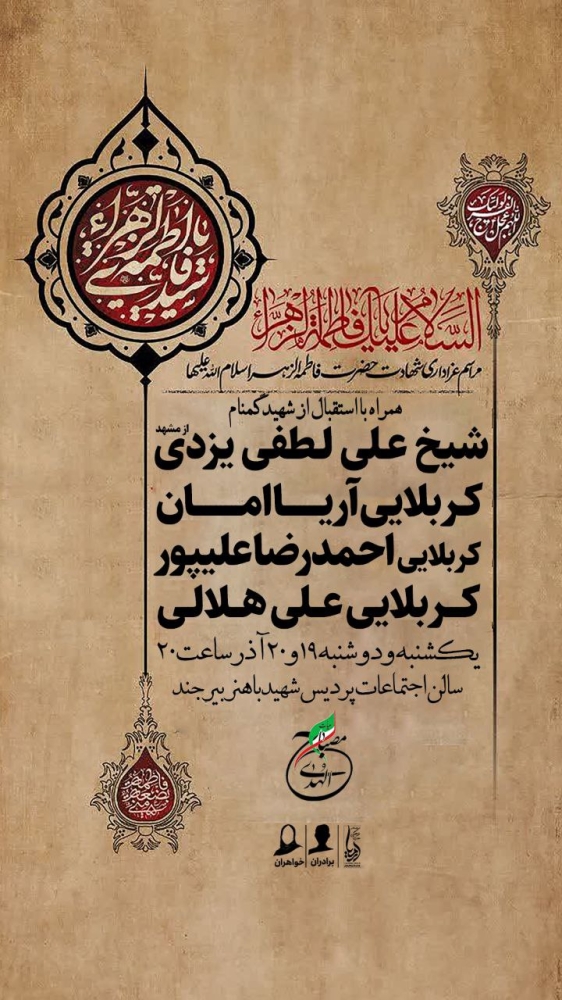 یا فاطمة الزهراء
السلام علیک یا فاطمة الزهراء
مراسم عزاداری شهادت حضرت فاطمه الزهرا سلام الله علیها
همراه با استقبال از شهید گمنام
شیخ علی لطفی یزدی از مشهد
کربلایی آریا امان
کربلایی احمدرضا علیپور
کربلایی علی هلالی
یکشنبه و دوشنبه ۱۹ و ۲۰ آذر ساعت ۲۰
سالن اجتماعات پردیس شهید باهنر بیرجند
مصباح الهدی
برادران
خواهران